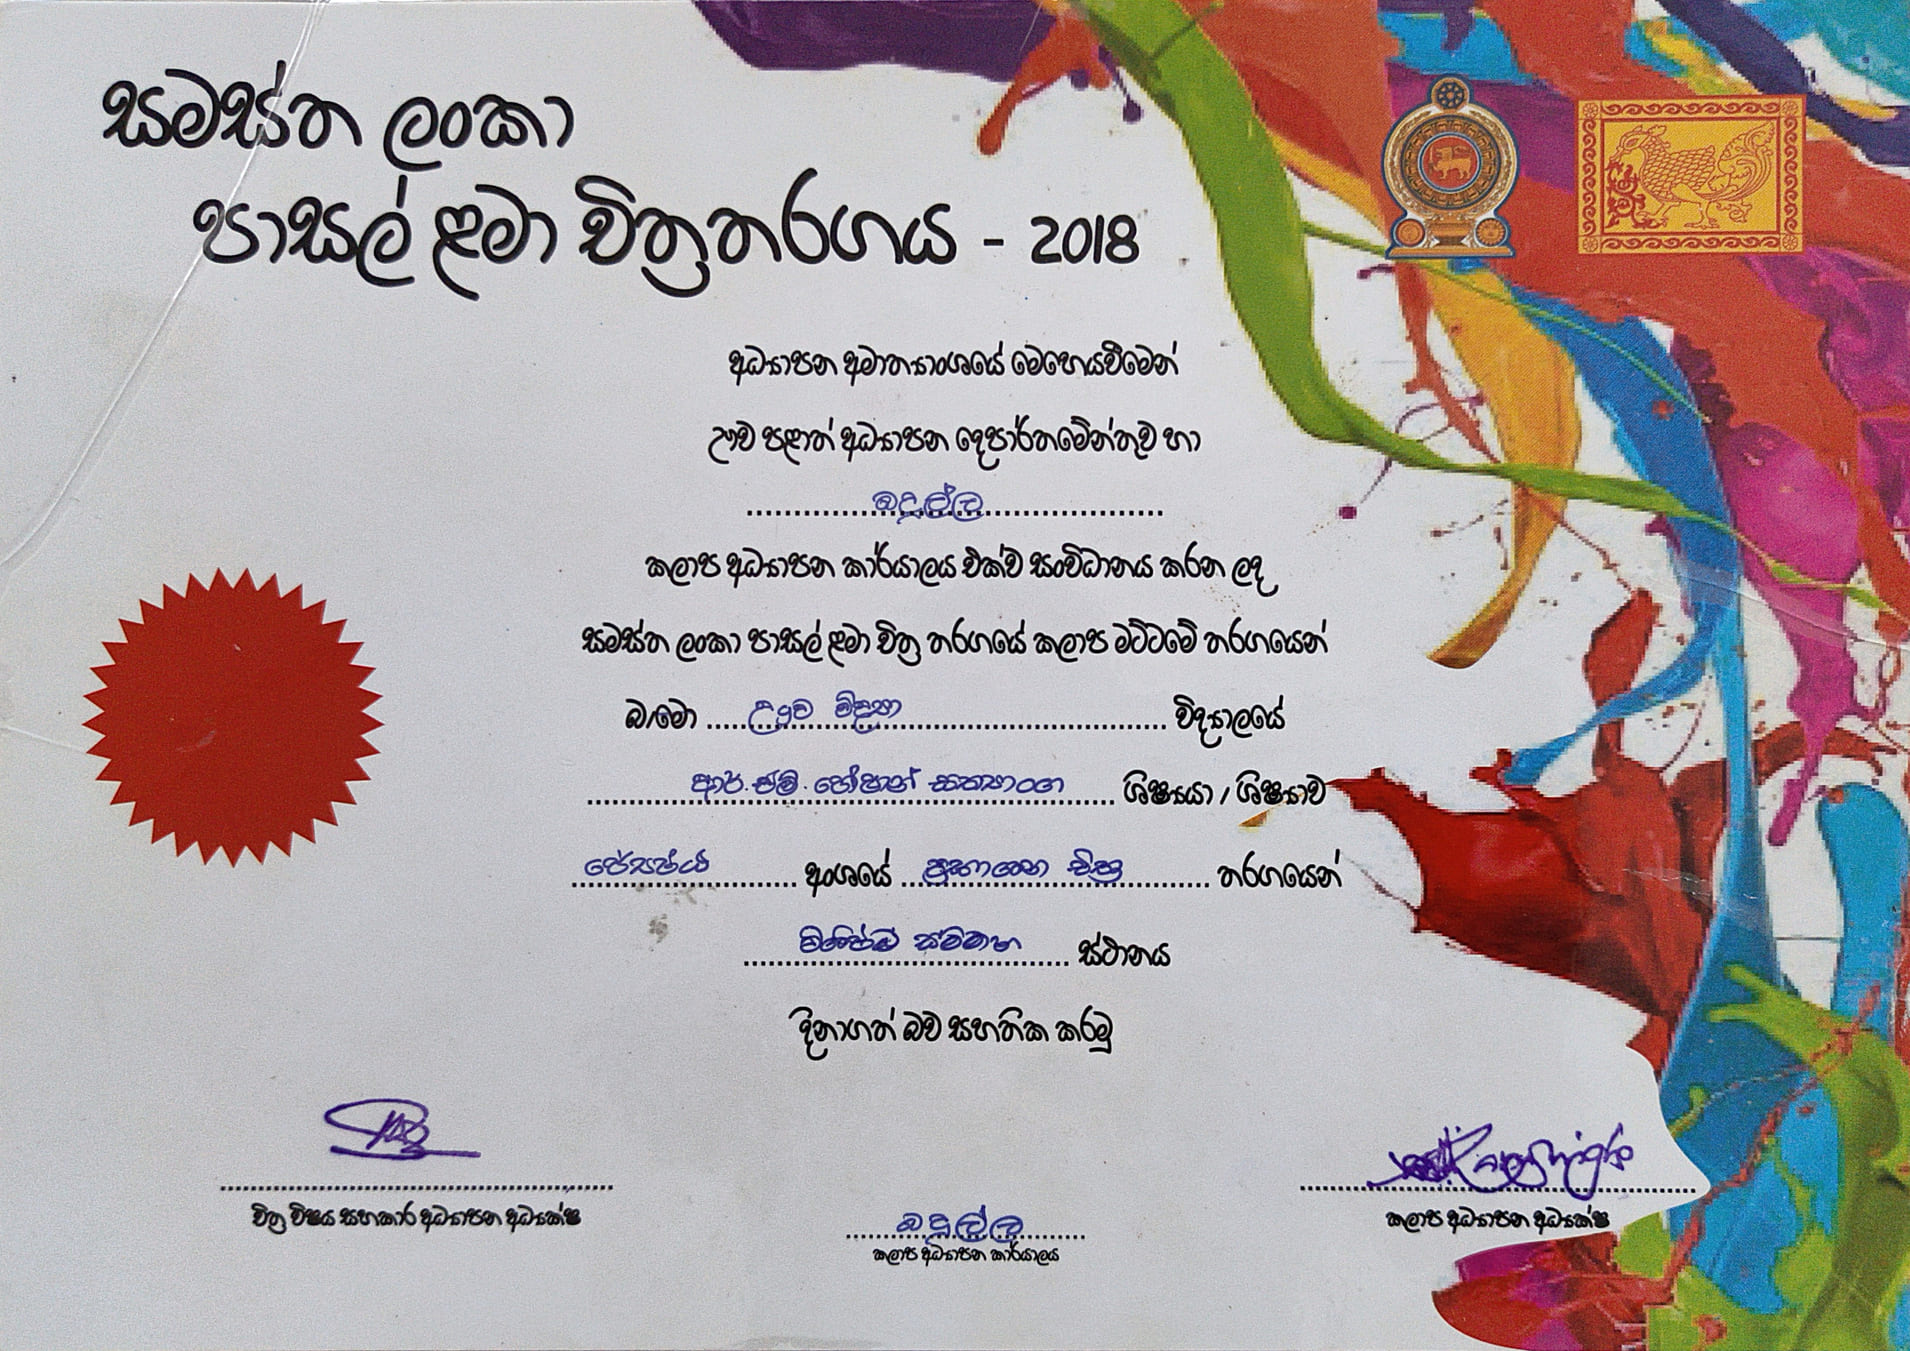 සමස්ත ලංකා
පාසල් ළමා චිත්‍ර තරගය - 2018
අධ්‍යාපන අමාත්‍යාංශයේ මෙහෙයවීමෙන්
ඌව පළාත් අධ්‍යාපන දෙපාර්තමේන්තුව හා
බදුල්ල
කලාප අධ්‍යාපන කාර්යාලය එක්ව සංවිධානය කරන ලද
සමස්ත ලංකා පාසල් ළමා චිත්‍ර තරගයේ කලාප මට්ටමේ තරගයෙන්
බ/මො ඌව විද්‍යා විද්‍යාලයේ
ආර්.එම්. හේෂාන් සත්‍යාංග ශිෂ්‍යයා / ශිෂ්‍යාව
ජේෂ්ඨ අංශයේ ප්‍රකාශන චිත්‍ර තරගයෙන්
විශිෂ්ඨ සම්මාන ස්ථානය
දිනාගත් බව සහතික කරමු
චිත්‍ර විෂය සහකාර අධ්‍යාපන අධ්‍යක්ෂ
බදුල්ල
කලාප අධ්‍යාපන කාර්යාලය
කලාප අධ්‍යාපන අධ්‍යක්ෂ